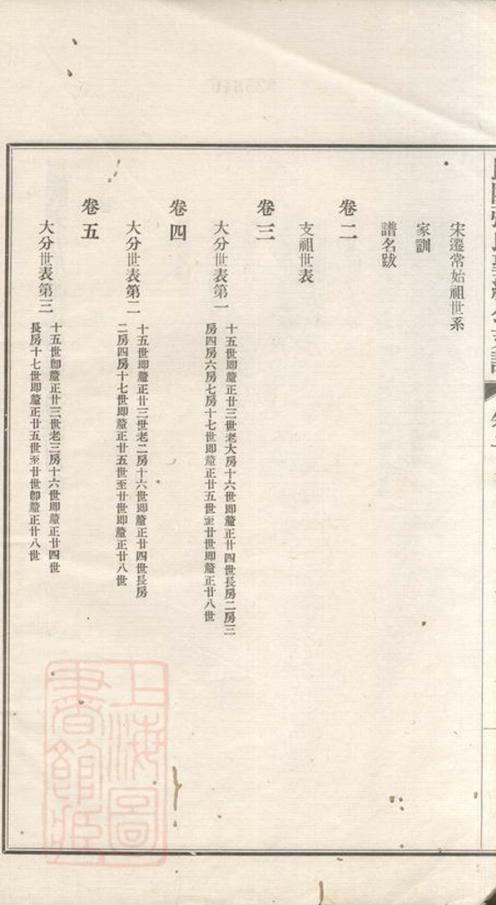 宋遷常始祖世系
家訓
譜名跋
卷二
支祖世表
卷三
大分世表第一
十五世即釐正廿三世老大房十六世即釐正廿四世長房二房三
房四房六房七房十七世即釐正廿五世至廿世即釐正廿八世
卷四
大分世表第二
十五世即釐正廿三世老二房十六世即釐正廿四世長房
二房四房十七世即釐正廿五世至廿世即釐正廿八世
卷五
大分世表第三
十五世即釐正廿三世老三房十六世即釐正廿四世
長房十七世即釐正廿五世至廿世即釐正廿八世
上海圖書館藏